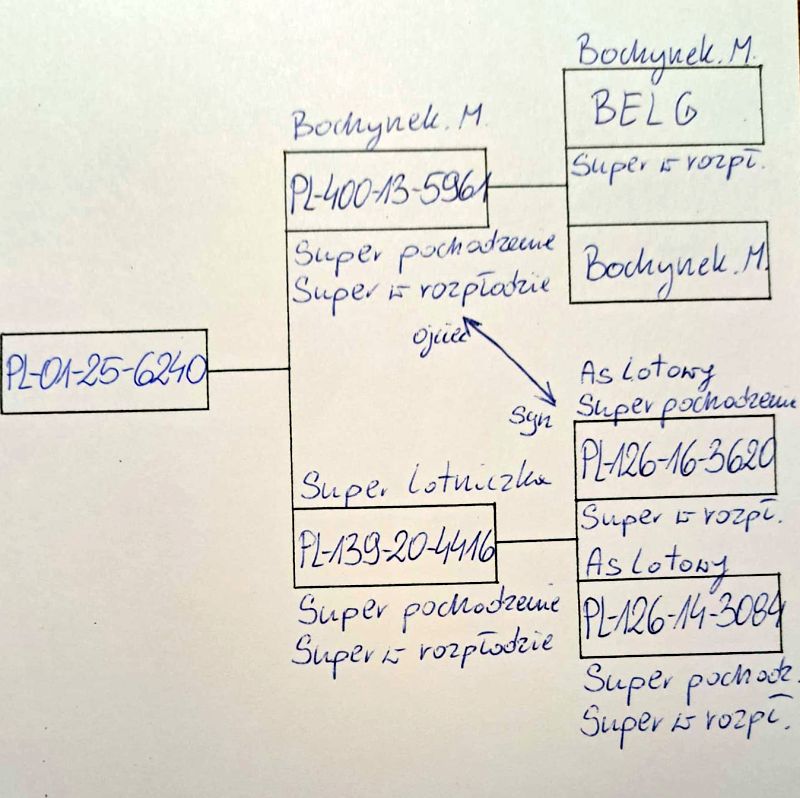 Bochynek. M.
BELG
Super w rozpł.
Bochynek. M.
Bochynek. M.
PL-400-13-5961
Super pochodzenie
Super w rozpłodzie
ojciec
syn
PL-01-25-6240
As Lotowy
Super pochodzenie
PL-126-16-3620
Super w rozpł.
Super Lotniczka
PL-139-20-4416
Super pochodzenie
Super w rozpłodzie
As Lotowy
PL-126-14-3084
Super pochodz.
Super w rozpł.